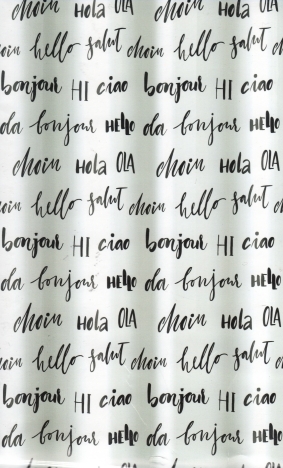 moin Hola OLA
moin hello salut moin hello salut
bonjour HI ciao bonjour HI ciao
ola bonjour HEllo ola bonjour HEllo
moin Hola OLA moin Hola OLA
moin hello salut moin hello salut
bonjour HI ciao bonjour HI ciao
ola bonjour HEllo ola bonjour HEllo
moin Hola OLA moin Hola OLA
moin hello salut moin hello salut
bonjour HI ciao bonjour HI ciao
ola bonjour HEllo ola bonjour HEllo